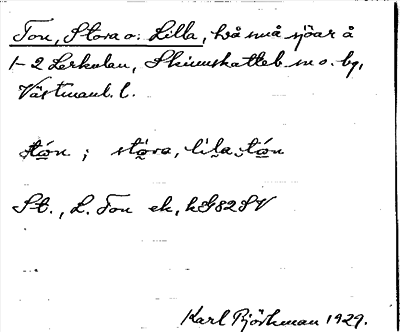 Ton, Stora o. Lilla, två små sjöar å
1-2 Lerkulan, Skinnskatteb. sn o. bg,
Västmanl. l.
tón ; stóra, lila tón
St., L. Ton ek, kG82SV
Karl Björkman 1929.